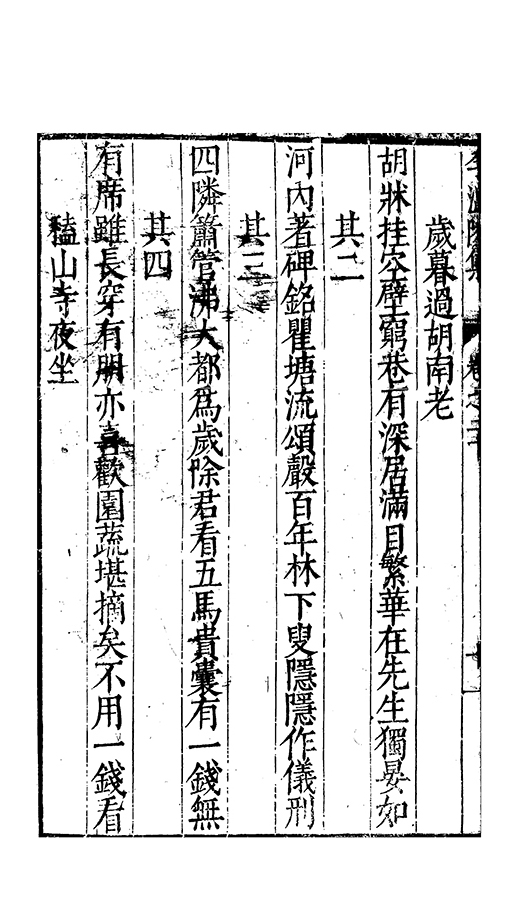 歲暮過胡南老
胡牀挂空壁窮巷有深居滿目繁華在先生獨晏如
其二
河內著碑銘瞿塘流頌聲百年林下叟隱隱作儀刑
其三
四隣簫管沸大都為歲除君看五馬貴囊有一錢無
其四
有席雖長穿有朋亦喜歡園蔬堪摘矣不用一錢看
山寺夜坐